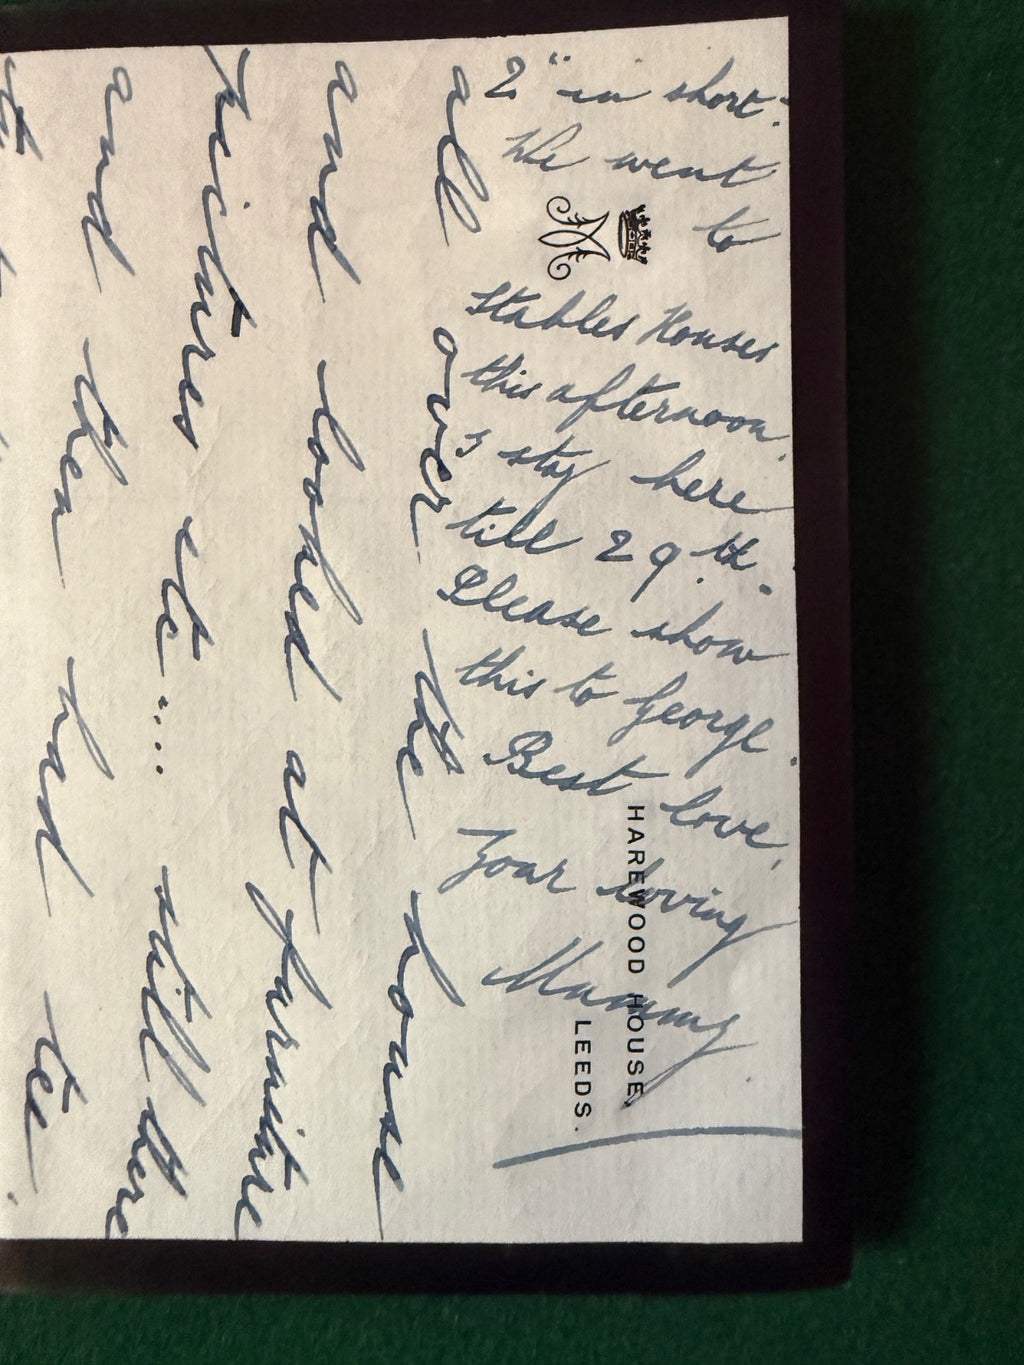 2 "in short:
We went
to
Stables Houses
this afternoon.
I stay here
till 29th.
Please show
this to George.
Best love,
your loving
Mummy
HAREWOOD HOUSE,
LEEDS.
all over the house
and looked at furniture
pictures etc .... still there
and then had tea